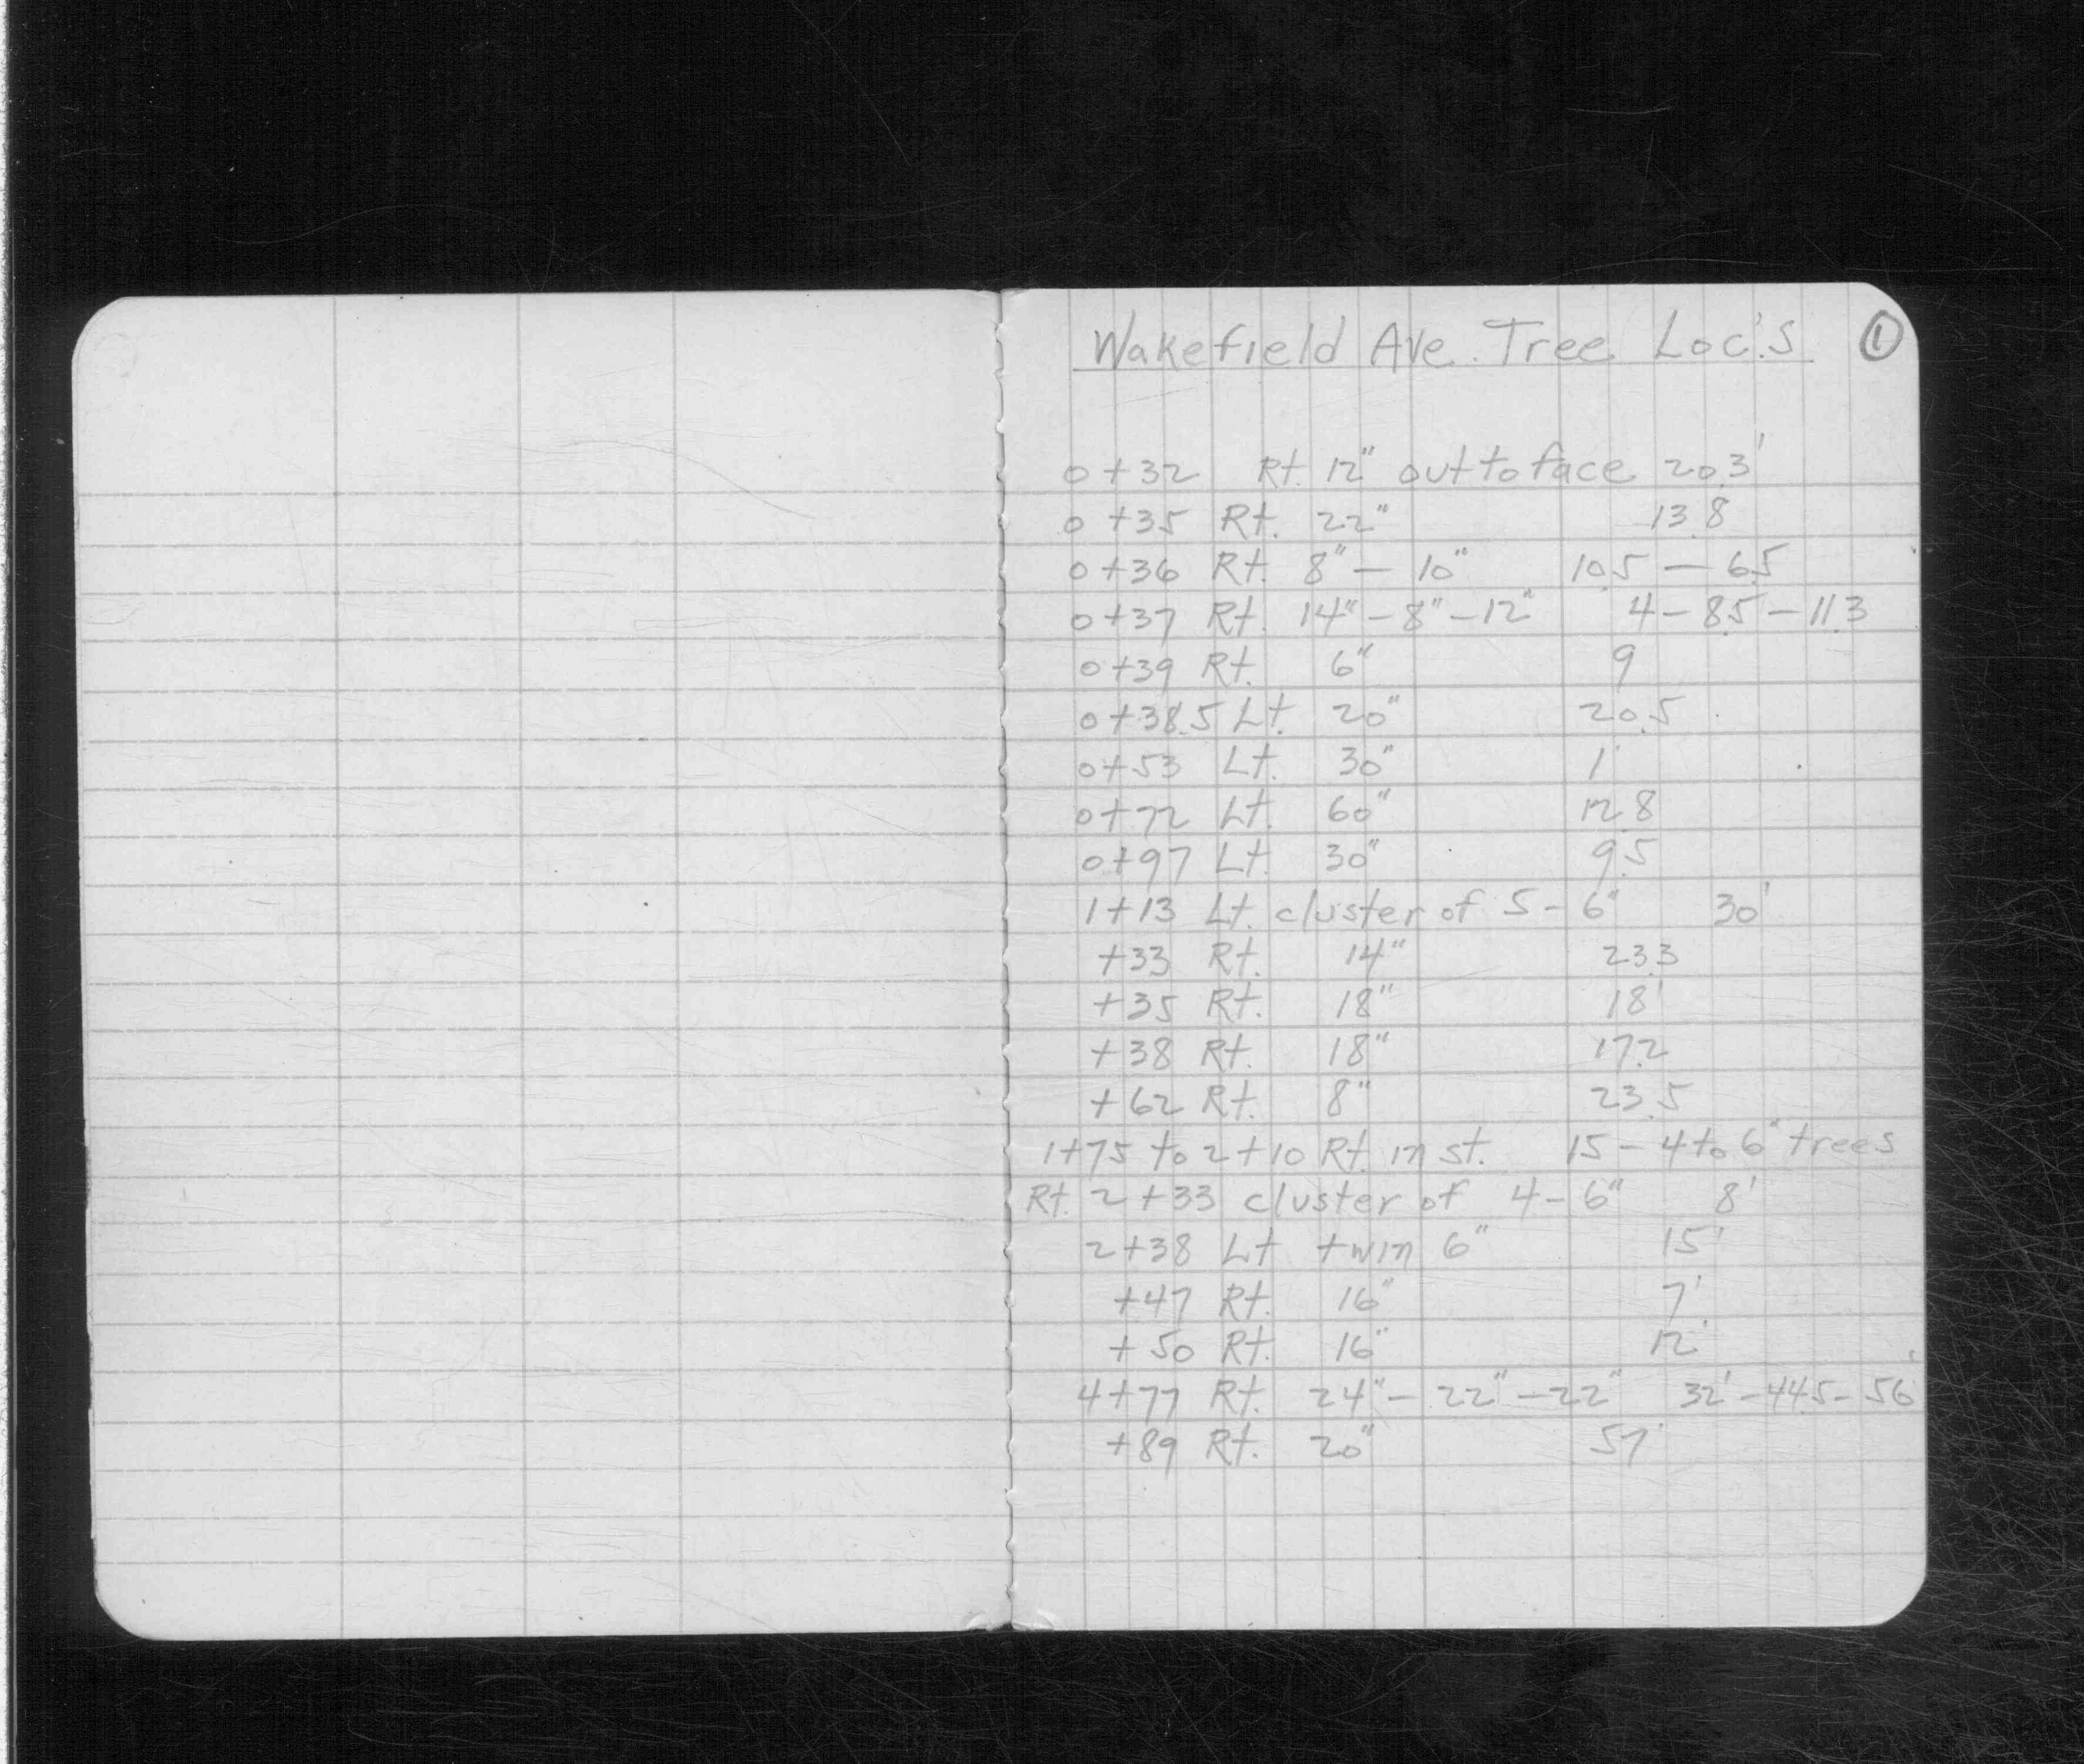 Wakefield Ave. Tree Loc's. 1
0+32 Rt. 12" out to face 20.3'
0+35 Rt. 22" 13.8
0+36 Rt. 8" — 10" 10.5 — 6.5
0+37 Rt. 14" - 8" - 12" 4 - 8.5 - 11.3
0+39 Rt. 6" 9
0+38.5 Lt. 20" 20.5
0+53 Lt. 30" 1'
0+72 Lt. 60" 12.8
0+97 Lt. 30" 9.5
1+13 Lt. cluster of 5 - 6" 30'
+33 Rt. 14" 23.3
+35 Rt. 18" 18'
+38 Rt. 18" 17.2
+62 Rt. 8" 23.5
1+75 to 2+10 Rt. in st. 15 - 4 to 6" trees
Rt. 2+33 cluster of 4 - 6" 8'
2+38 Lt twin 6" 15'
+47 Rt. 16" 7'
+50 Rt. 16" 12'
4+77 Rt. 24" - 22" - 22" 32' - 44.5 - 56'
+89 Rt. 20" 57'